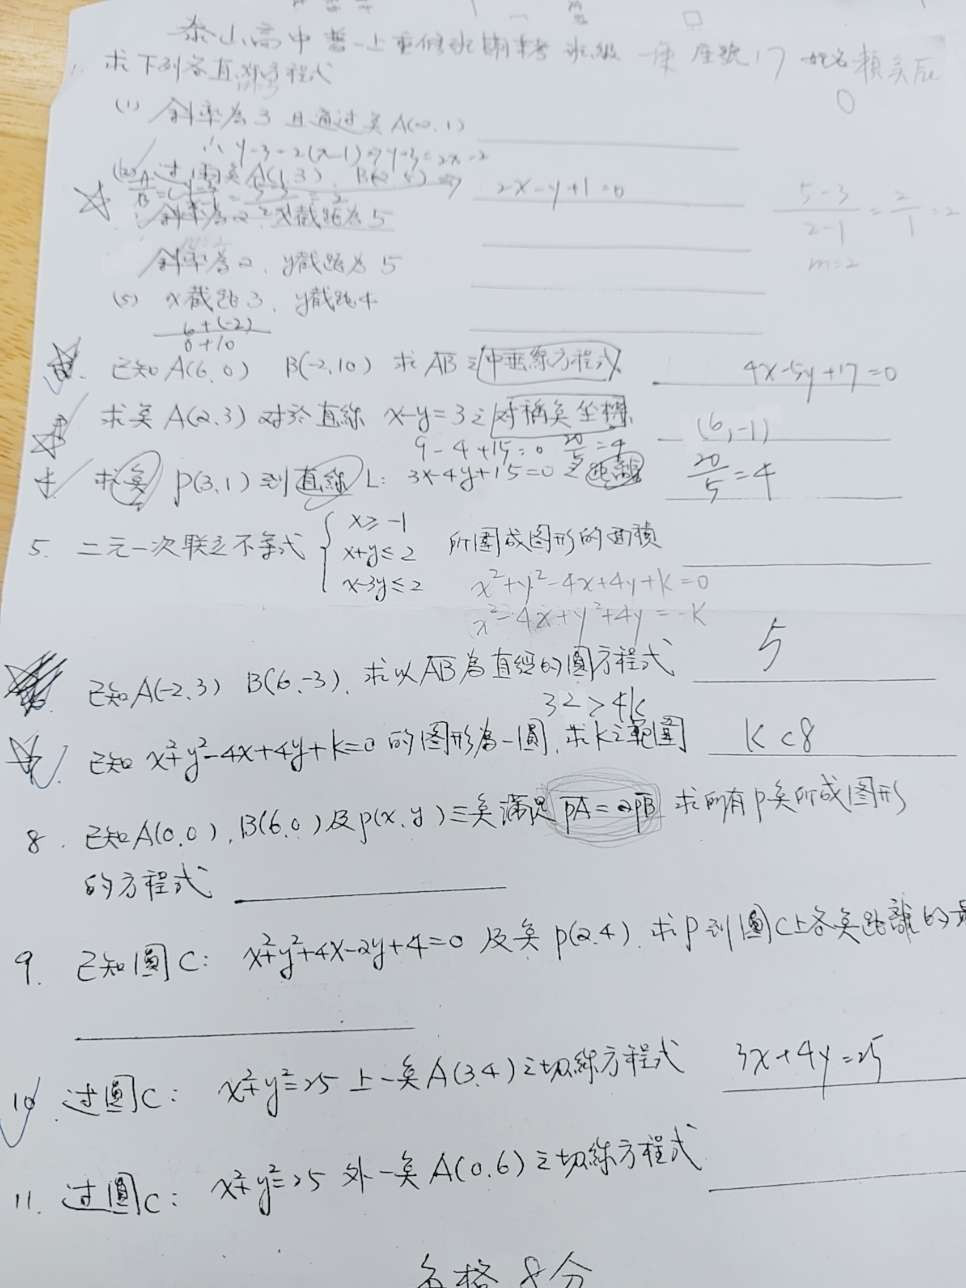 泰山高中 普一上重修班期末考 班級 一 座號 17 姓名 賴
0
求下列各直線方程式
(1) 斜率為 3 且通過點 A(2,1)
∴ y-3=2(x-1)⇒y-3=2x-2
(2) 过 A(1,3) B(2,5) ⇒ 2x-y+1=0
5-3/2-1 = 2/1 = 2
m=2
斜率為 2, x截距為 5
斜率為 2, y截距為 5
(5) x截距 3, y截距 4
6+(-2)/0+10
已知 A(6,0) B(-2,10) 求 AB 之中垂線方程式 4x-5y+17=0
求點 A(2,3) 对於直線 x-y=3 之对稱點坐標 (6,-1)
9-4+15=0 20/5=4
4 求點 P(3,1) 到直線 L: 3x-4y+15=0 之距離 20/5=4
5. 二元一次联立不等式 { x≥-1 x+y≤2 x-3y≤2 所围成图形的面積
x²+y²-4x+4y+k=0
x²-4x+y²+4y=-k
已知 A(-2,3) B(6,-3), 求以 AB 為直徑的圓方程式 5
32>4k
已知 x²+y²-4x+4y+k=0 的图形為一圓, 求k之範圍 k<8
8. 已知 A(0,0), B(6,0) 及 P(x,y) 三點滿足 PA=2PB 求所有P點所成图形
的方程式
9. 已知圓 C: x²+y²+4x-2y+4=0 及點 P(2,4), 求P到圓C上各點距離的最
10. 过圓 C: x²+y²=25 上一點 A(3,4) 之切線方程式 3x+4y=25
11. 过圓 C: x²+y²=25 外一點 A(0,6) 之切線方程式
各格 8 分